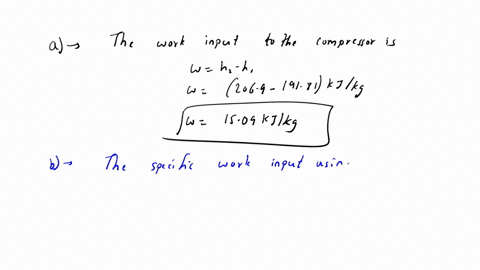 a)→ The work input to the compressor is
w = h₂-h₁
w = (206.9 - 191.81) kJ/kg
w = 15.09 kJ/kg
b)→ The specific work input usin.